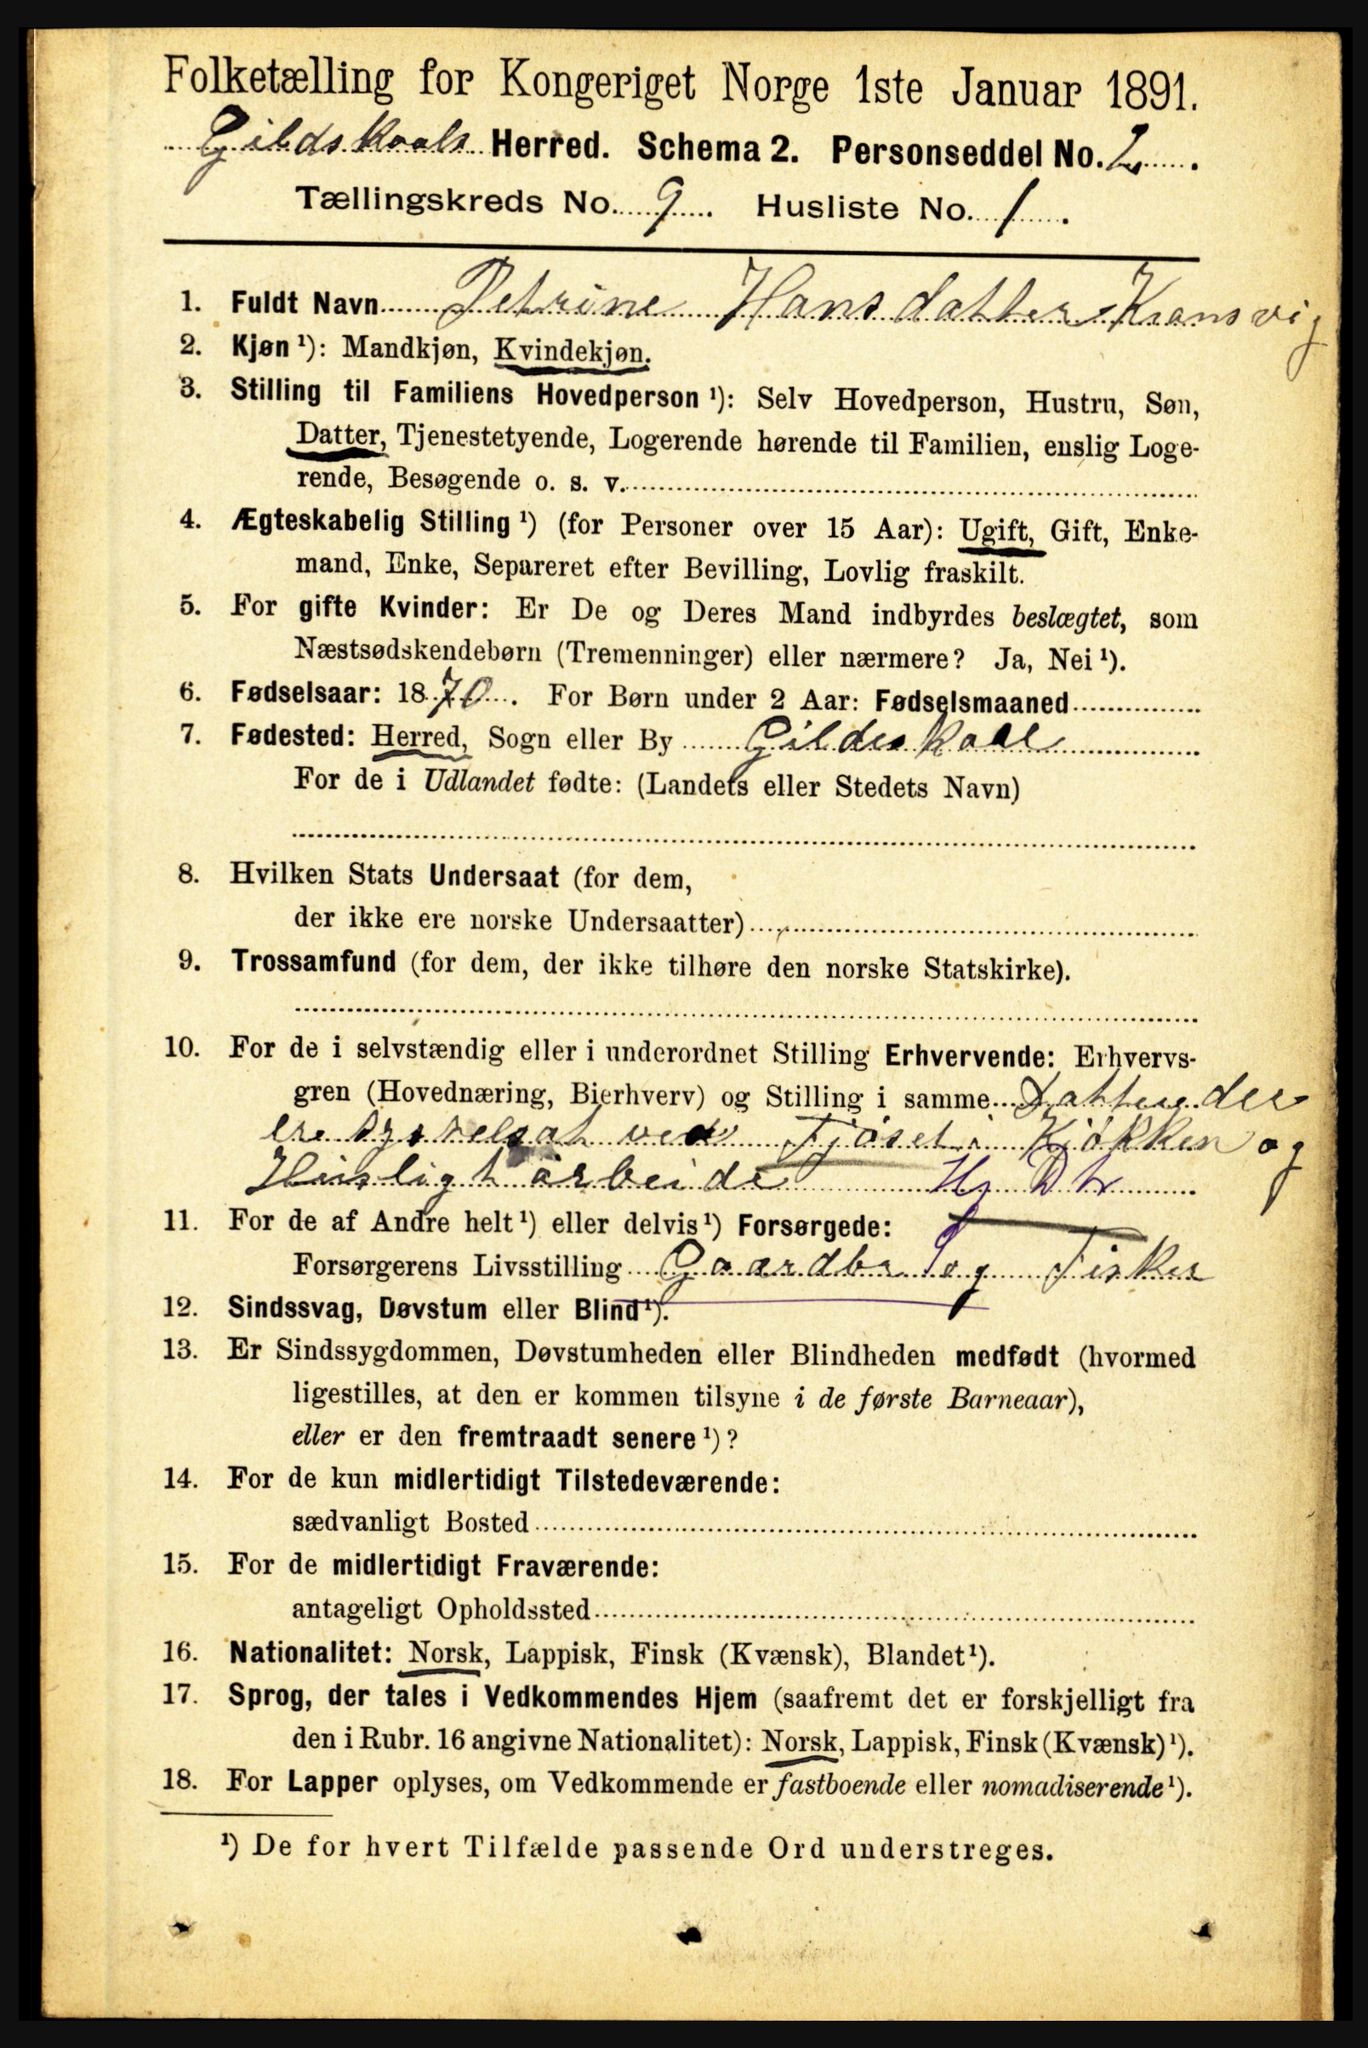 Folketælling for Kongeriget Norge 1ste Januar 1891.
Gildskaals Herred. Schema 2. Personseddel No. 2.
Tællingskreds No. 9. Husliste No. 1.
1. Fuldt Navn Petrine Hansdatter Kransvig
2. Kjøn ¹): Mandkjøn, Kvindekjøn.
3. Stilling til Familiens Hovedperson ¹): Selv Hovedperson, Hustru, Søn,
Datter, Tjenestetyende, Logerende hørende til Familien, enslig Loge-
rende, Besøgende o. s. v.
4. Ægteskabelig Stilling ¹) (for Personer over 15 Aar): Ugift, Gift, Enke-
mand, Enke, Separeret efter Bevilling, Lovlig fraskilt.
5. For gifte Kvinder: Er De og Deres Mand indbyrdes beslægtet, som
Næstsødskendebørn (Tremenninger) eller nærmere? Ja, Nei ¹).
6. Fødselsaar: 1870. For Børn under 2 Aar: Fødselsmaaned
7. Fødested: Herred, Sogn eller By Gildeskaal
For de i Udlandet fødte: (Landets eller Stedets Navn)
8. Hvilken Stats Undersaat (for dem,
der ikke ere norske Undersaatter)
9. Trossamfund (for dem, der ikke tilhøre den norske Statskirke).
10. For de i selvstændig eller i underordnet Stilling Erhvervende: Erhvervs-
gren (Hovednæring, Bierhverv) og Stilling i samme Datter der
er sysselsat ved Fjøset i Kjøkken og
Husligt arbeide
11. For de af Andre helt ¹) eller delvis ¹) Forsørgede:
Forsørgerens Livsstilling Gaardbr og Fisker
12. Sindssvag, Døvstum eller Blind ¹).
13. Er Sindssygdommen, Døvstumheden eller Blindheden medfødt (hvormed
ligestilles, at den er kommen tilsyne i de første Barneaar),
eller er den fremtraadt senere ¹)?
14. For de kun midlertidigt Tilstedeværende:
sædvanligt Bosted
15. For de midlertidigt Fraværende:
antageligt Opholdssted
16. Nationalitet: Norsk, Lappisk, Finsk (Kvænsk), Blandet ¹).
17. Sprog, der tales i Vedkommendes Hjem (saafremt det er forskjelligt fra
den i Rubr. 16 angivne Nationalitet): Norsk, Lappisk, Finsk (Kvænsk) ¹).
18. For Lapper oplyses, om Vedkommende er fastboende eller nomadiserende ¹).
¹) De for hvert Tilfælde passende Ord understreges.